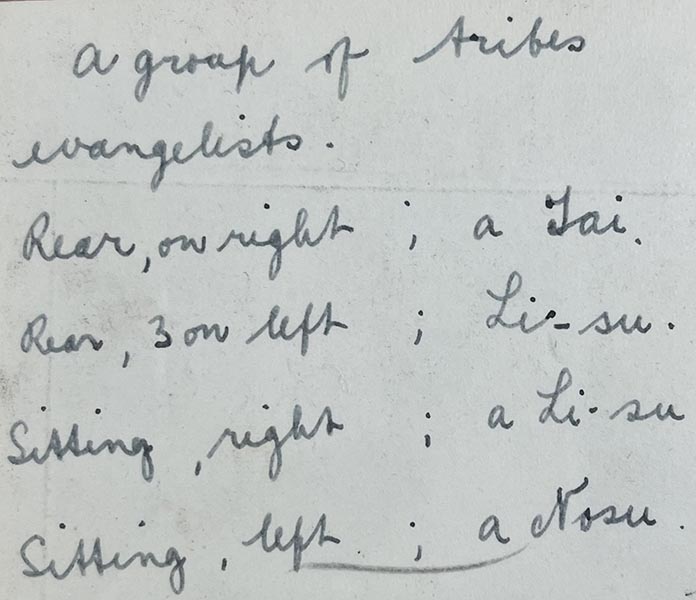 A group of tribes
evangelists.
Rear, on right ; a Tai.
Rear, 3 on left ; Li-su.
Sitting, right ; a Li-su
Sitting, left ; a Nosu.